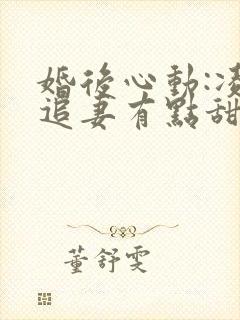 婚後心動:凌
追妻有點甜
董舒雯